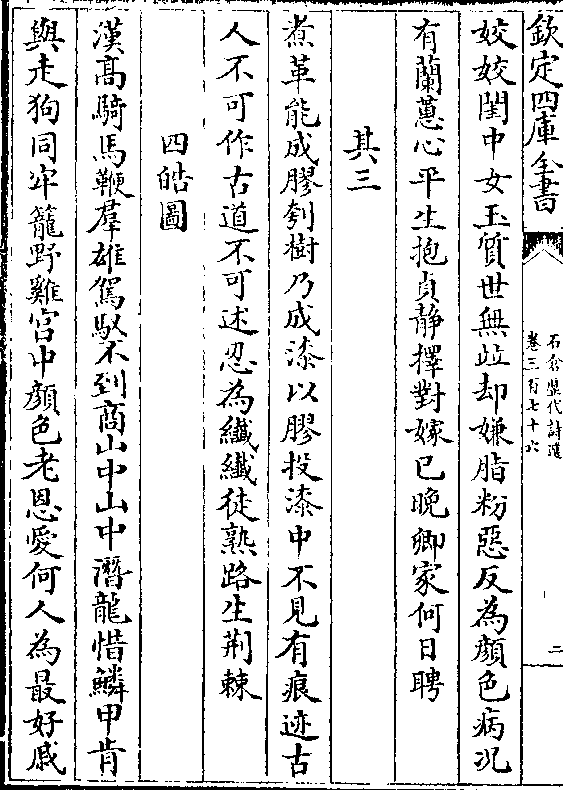 欽定四庫全書
石倉歴代詩選
卷三百七十六
二
姣姣閨中女玉質世無並却嫌脂粉惡反為顔色病况
有蘭蕙心平生抱貞静擇對嫁已晚卿家何日聘
其三
煮革能成膠刳樹乃成漆以膠投漆中不見有痕迹古
人不可作古道不可述忍為纎纎徒熟路生荆棘
四皓圖
漢髙騎馬鞭羣雄駕馭不到商山中山中潛龍惜鱗甲肯
與走狗同牢籠野雞宫中顔色老恩愛何人為最好戚